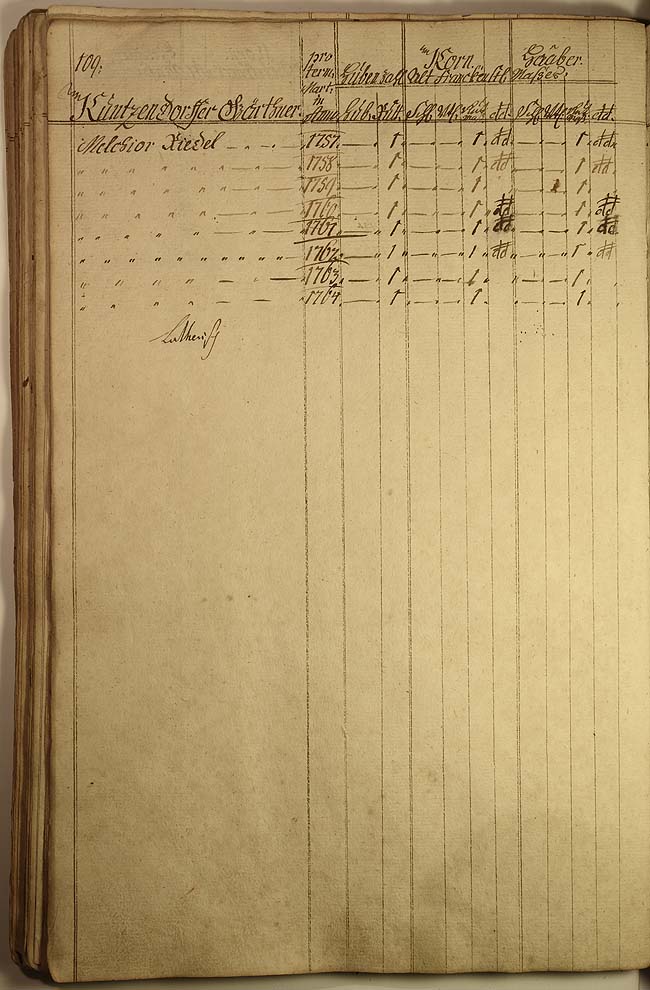 109.
pro term: Mart: in Anno
Korn. Haaber.
Huben Zahl Alt Franckenst: Maßes.
Kuntzendorffer Gärthner. Hub: Rut. Schl. Mtz. dd. Schl. Mtz. dd.
Melchior Riedel — „ — „ — 1757. — „ 1 „ — „ — „ 1 „ dd „ — „ — „ 1 „ dd
„ „ „ „ „ — „ — 1758 — „ 1 „ — „ — „ 1 „ dd „ — „ — „ 1 „ dd
„ „ „ „ „ — „ — 1759 — „ 1 „ — „ — „ 1 „ — „ — „ 1
„ „ „ „ „ — „ — 1760 — „ 1 „ — „ — „ 1 „ dd „ — „ — „ 1 „ dd
„ „ „ „ „ — „ — 1761 — „ 1 „ — „ — „ 1 „ dd „ — „ — „ 1 „ dd
„ „ „ „ „ „ „ „ 1762 — „ 1 „ — „ — „ 1 „ dd „ — „ — „ 1 „ dd
„ „ „ „ „ — „ — 1763. — „ 1 „ — „ — „ 1 „ — „ — „ 1
„ „ „ „ „ — „ — 1764 — „ 1 „ — „ — „ 1 „ — „ — „ 1.
Lutherisch